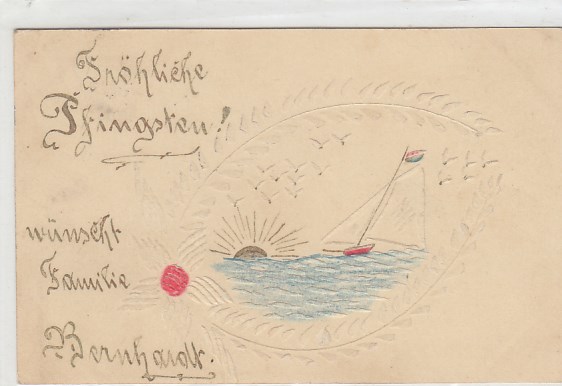 Fröhliche
Pfingsten!
wünscht
Familie
Bernhardt.